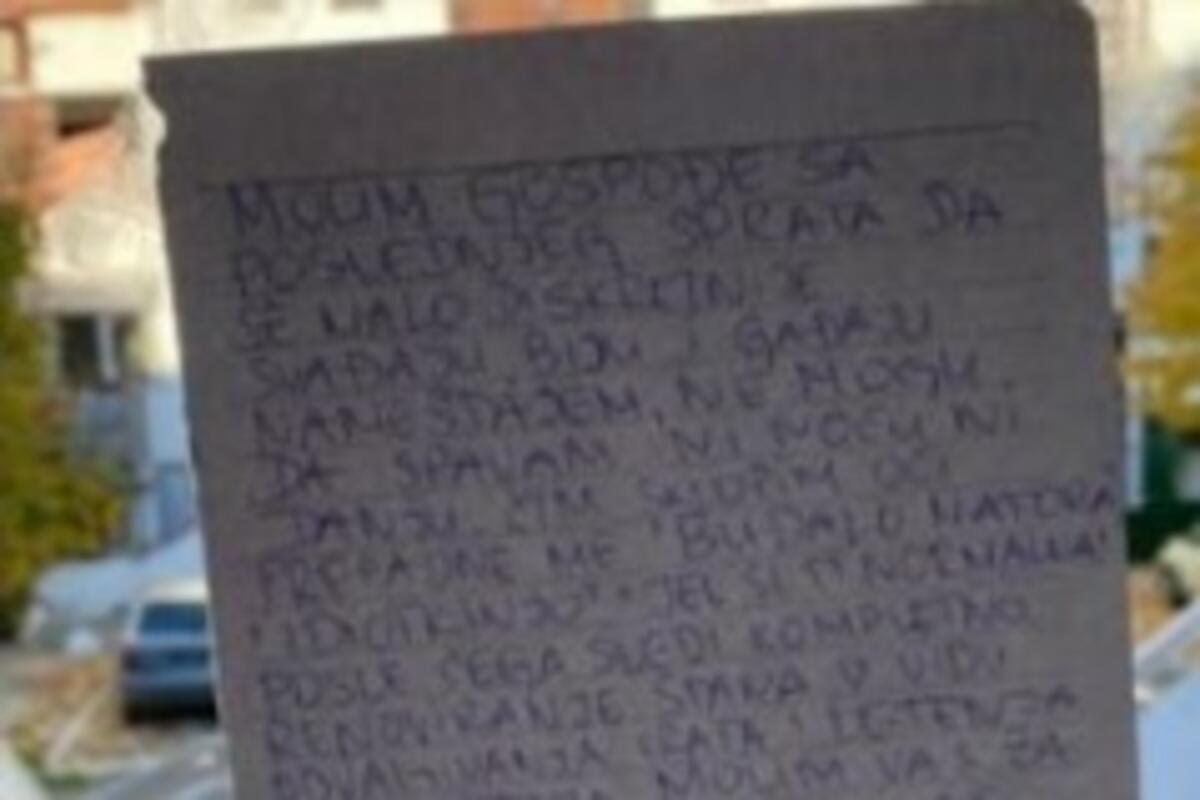 MOLIM GOSPOĐE SA
POSLEDNJEG SPRATA DA
SE MALO DISKRETNIJE
SVAĐAJU, BIJU I GAĐAJU
NAMEŠTAJEM, NE MOGU
DA SPAVAM NI NOĆU NI
DANJU. ČIM SKLOPIM OČI
PREPADNE ME "BUDALO MATORA"
"IDIOTKINJO" "JEL SI TI NORMALNA"
POSLE ČEGA SLEDI KOMPLETNO
RENOVIRANJE STANA U VIDU
RAZVALJIVANJA VRATA I LETENJA
MOLIM VAS ZA